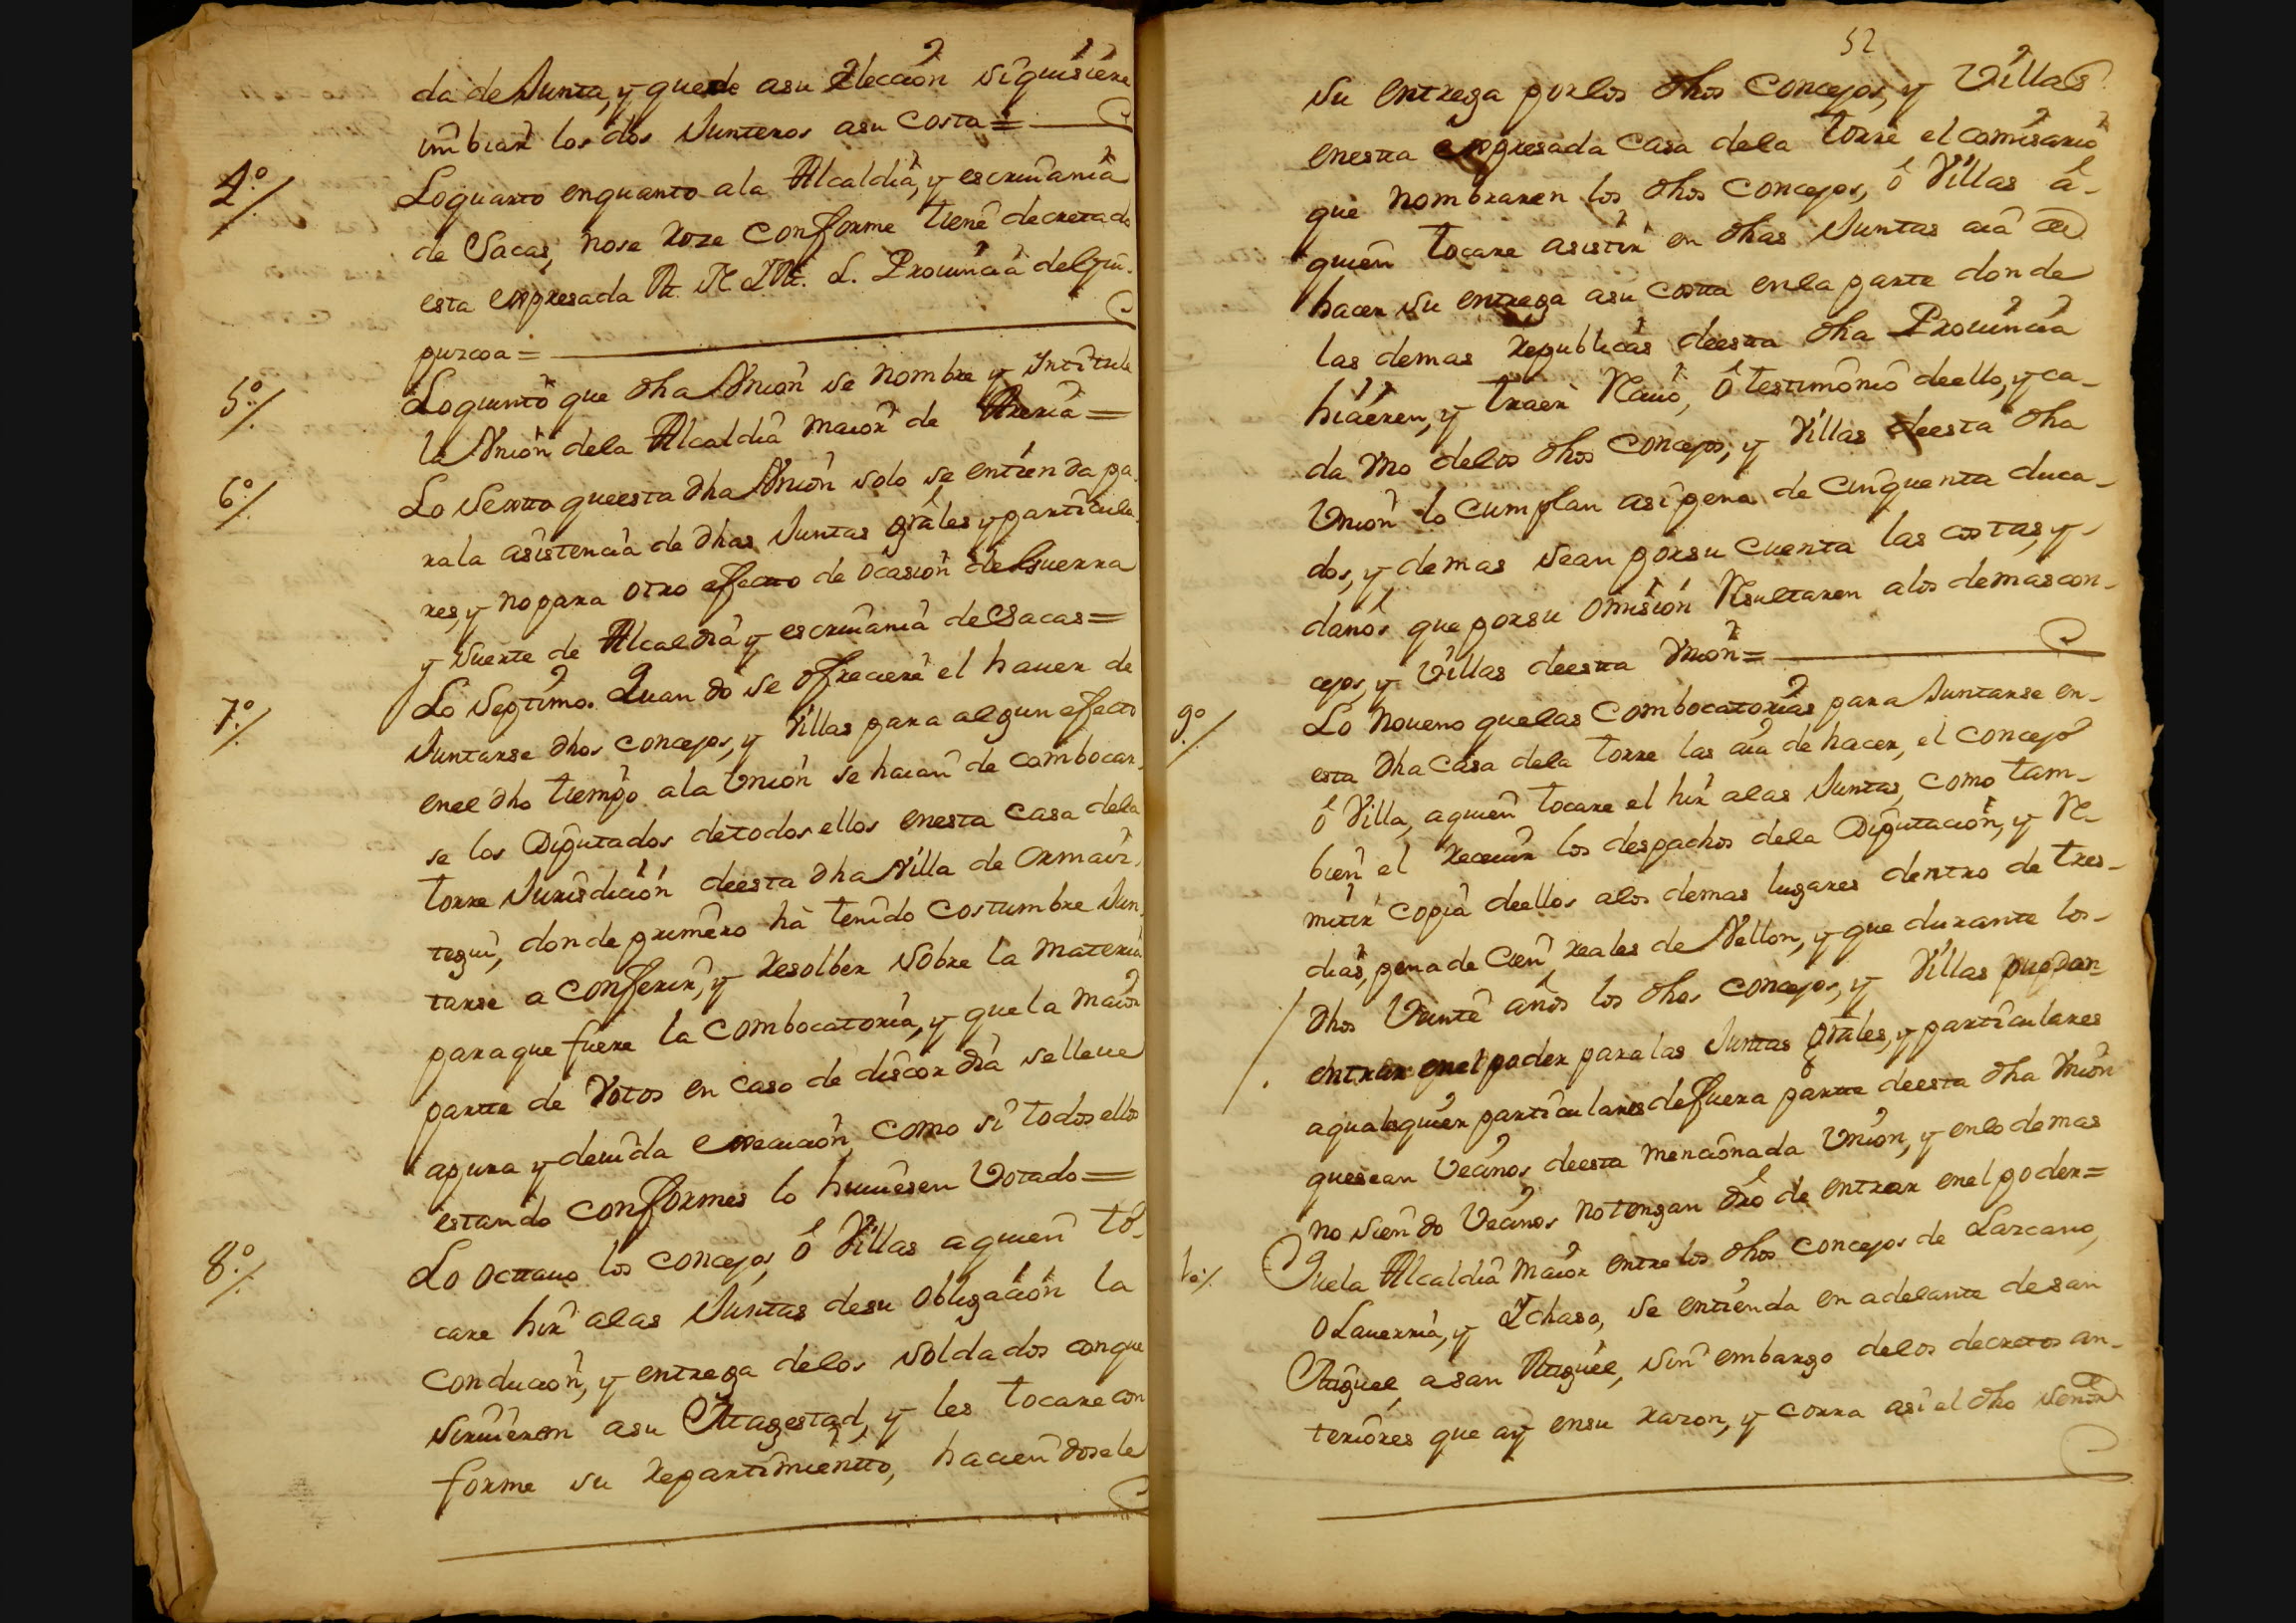 da de Junta, y quede a su Eleccion si quisiere
imbiar los dos Junteros a su costa =
4º/. Lo quarto en quanto a la Alcaldia, y escriuania
de Sacas, no se roze conforme tiene decretado
esta expresada M. N. I M. L. Prouincia de Guï-
puzcoa =
5º/. Lo quinto que dha Vnion se nombre y Intitule
la Vnion de la Alcaldia maior de Areria =
6º/. Lo Sextto que esta dha Vnion solo se entienda pa
ra la asistencia de dhas Juntas grâles y particula
res, y no para otro efectto de ocasion de Guerra
y Suerte de Alcaldia y escriuania de Sacas =
7º/. Lo Septimo. Quando se ofreciere el hauer de
Juntarse dhos concejos, y Villas para algun efecto
en el dho tiempo a la Vnion se haian de combocar
se los Diputados de todos ellos en esta Casa de la
torre Jurisdicion de esta dha Villa de Ormaiz
tegui, donde primero hà tenido costumbre Jun
tarse a conferir, y resolber sobre la materia
para que fuere la combocatoria, y que la maior
partte de Votos en caso de discordia se lleue
a pura y deuida execucion, como si todos ellos
estando conformes lo huuiesen Votado =
8º/. Lo octtauo los concejos, ô Villas a quien to-
care hir a las Juntas de su obligacion la
conducion, y entrega de los soldados con que
siruieren a su Magestad, y les tocare con
forme su repartimientto, haciendosele
52
su entrega por los dhos Concejos, y Villas
en estta expresada Casa de la torre el comisario
que nombraren los dhos Concejos, ô Villas â-
quien tocare asistir en dhas Juntas aia de
hacer su entrega a su costta en la parte donde
las demas republicas de estta dha Prouincia
hicieren, y traer Reciuo, ô testimonio de ello, y ca-
da vno de los dhos Concejos, y Villas de esta dha
Vnion lo cumplan asi pena de cinquenta duca-
dos, y demas sean por su cuenta las costas, y-
daños que por su omision Resultaren a los demas con-
cejos, y Villas de estta Vnion =
9º/. Lo Noueno que las Combocatorias para Juntarse en-
esta dha Casa de la torre las aia de hacer, el concejo
ô Villa, a quien tocare el hir a las Juntas, como tam-
bien el receuir los despachos de la Diputacion, y Re-
mitir copia de ellos a los demas lugares dentro de tres-
dias, pena de Cien reales de Vellon, y que durante los-
dhos Veinte años los dhos concejos, y Villas puedan
entrar en el poder para las Juntas grâles, y particulares
a qualesquier particulares de fuera partte de esta dha Vnion
que sean Vecinos de esta mencionada Vnion, y en lo demas
no siendo Vecinos no tengan dro de entrar en el poder =
10/. Que la Alcaldia maior entre los dhos Concejos de Lazcano,
Olauerria, y Ychaso, se entienda en adelante de san
Miguel, a san Miguel, sin embargo de los decretos an-
teriores que ay en su razon, y corra asi el dho Señor